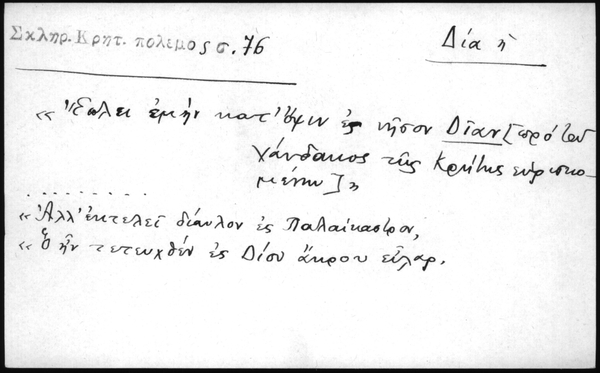 Σκληρ. Κρητ. πόλεμος σ. 76
Δία ἡ
« Ἔπλει ἐμὴν κατ' ὄψιν ἐς νῆσον Δῖαν [πρὸ τοῦ
Χάνδακος τῆς Κρήτης εὑρισκο-
μένην] »
. . . . . . . . .
« Ἀλλ' ἐκτελεῖ δίαυλον ἐς Παλαίκαστρον,
« Ὃ ἦν τετευχθέν ἐς Δίου ἄκρου εἶλαρ.